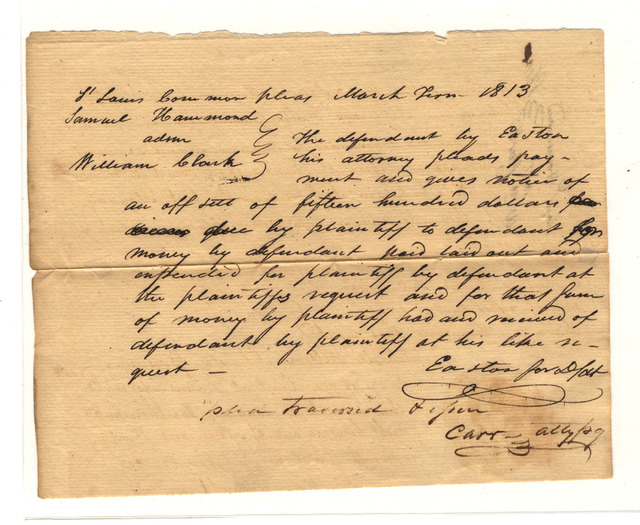 St Louis Common pleas March Term 1813
Samuel Hammond
admr
William Clark
The defendant by Easton
his attorney pleads pay-
ment and gives notice of
an off sett of fifteen hundred dollars
due by plaintiff to defendant for
money by defendant paid laid out and
expended for plaintiff by defendant at
the plaintiffs request and for that sum
of money by plaintiff had and received of
defendant by plaintiff at his like re-
quest —
Easton for Dfdt
plea traversed & issue
Carr atty pq